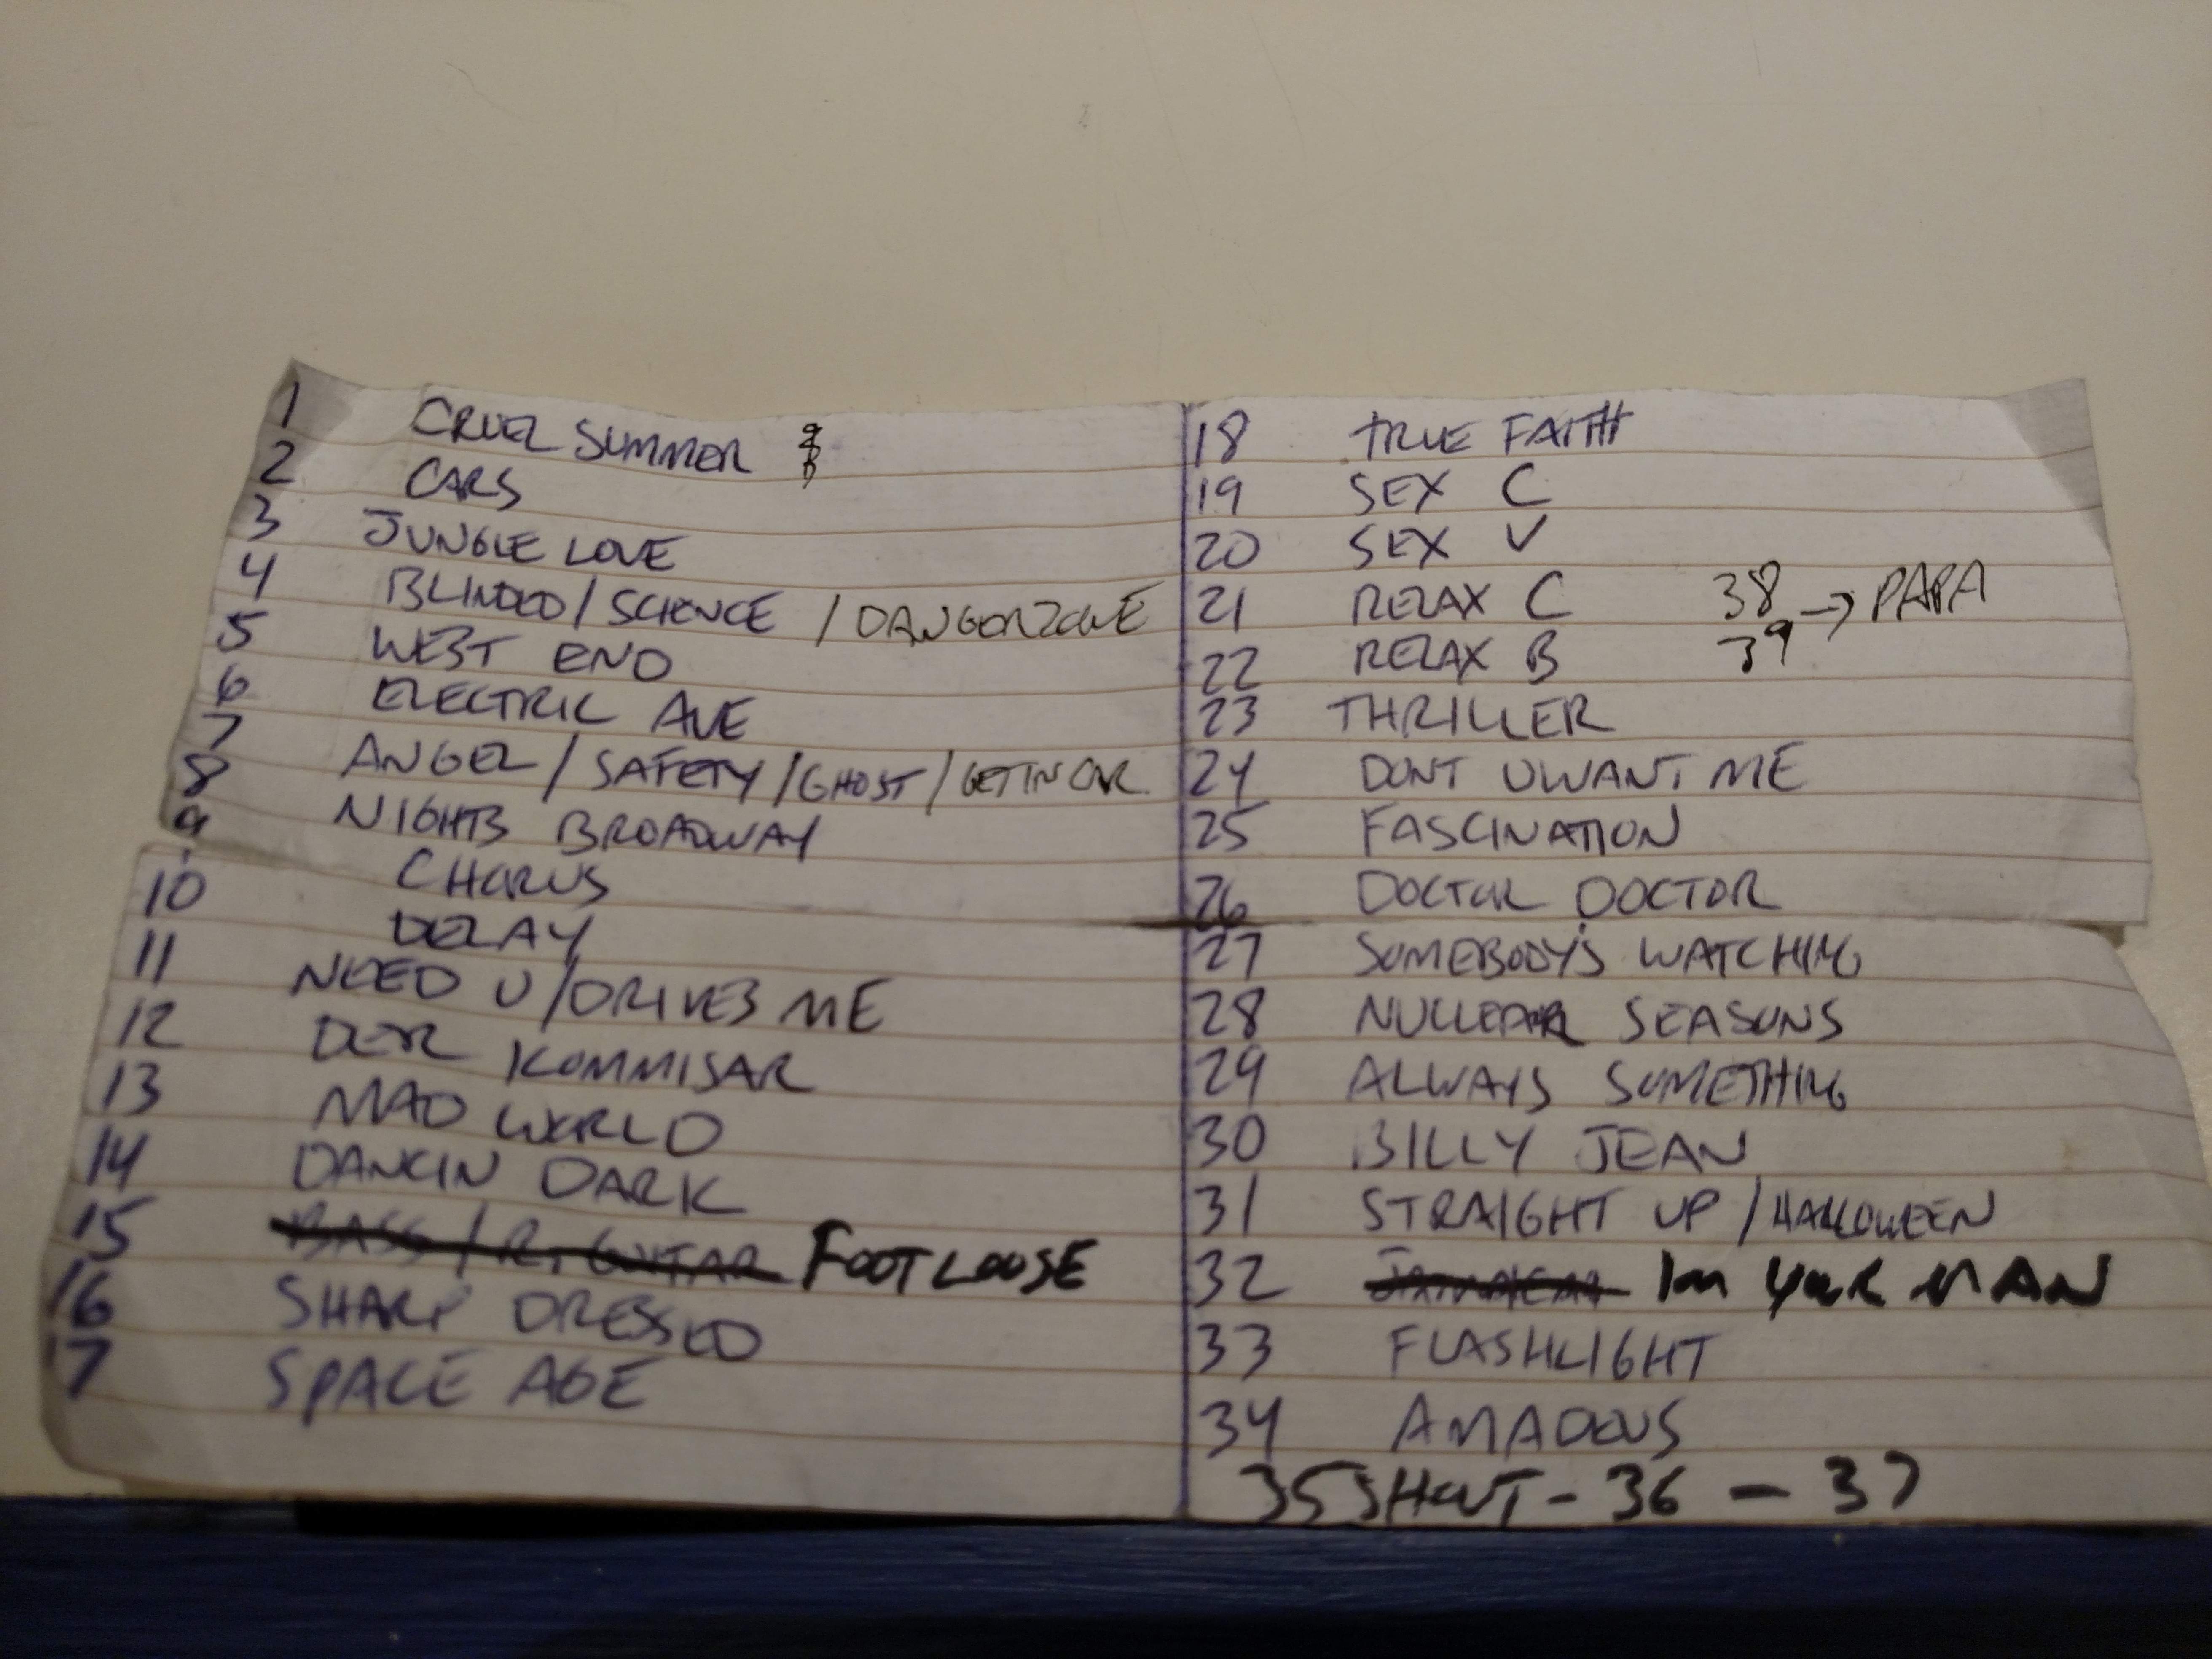 1 CRUEL SUMMER
2 CARS
3 JUNGLE LOVE
4 BLINDED / SCIENCE / DANGERZONE
5 WEST END
6 ELECTRIC AVE
7 ANGEL / SAFETY / GHOST / GET IN CAR
8 NIGHTS BROADWAY
9 CHORUS
10 DELAY
11 NEED U / DRIVES ME
12 DER KOMMISAR
13 MAD WORLD
14 DANCIN DARK
15 BASS / R. GUITAR FOOTLOOSE
16 SHARP DRESSED
17 SPACE AGE
18 TRUE FAITH
19 SEX C
20 SEX V
21 RELAX C 38 → PAPA
22 RELAX B 39
23 THRILLER
24 DONT U WANT ME
25 FASCINATION
26 DOCTOR DOCTOR
27 SOMEBODY'S WATCHING
28 NUCLEAR SEASONS
29 ALWAYS SOMETHING
30 BILLY JEAN
31 STRAIGHT UP / HALLOWEEN
32 Im YOUR MAN
33 FLASHLIGHT
34 AMADEUS
35 SHOUT - 36 - 37